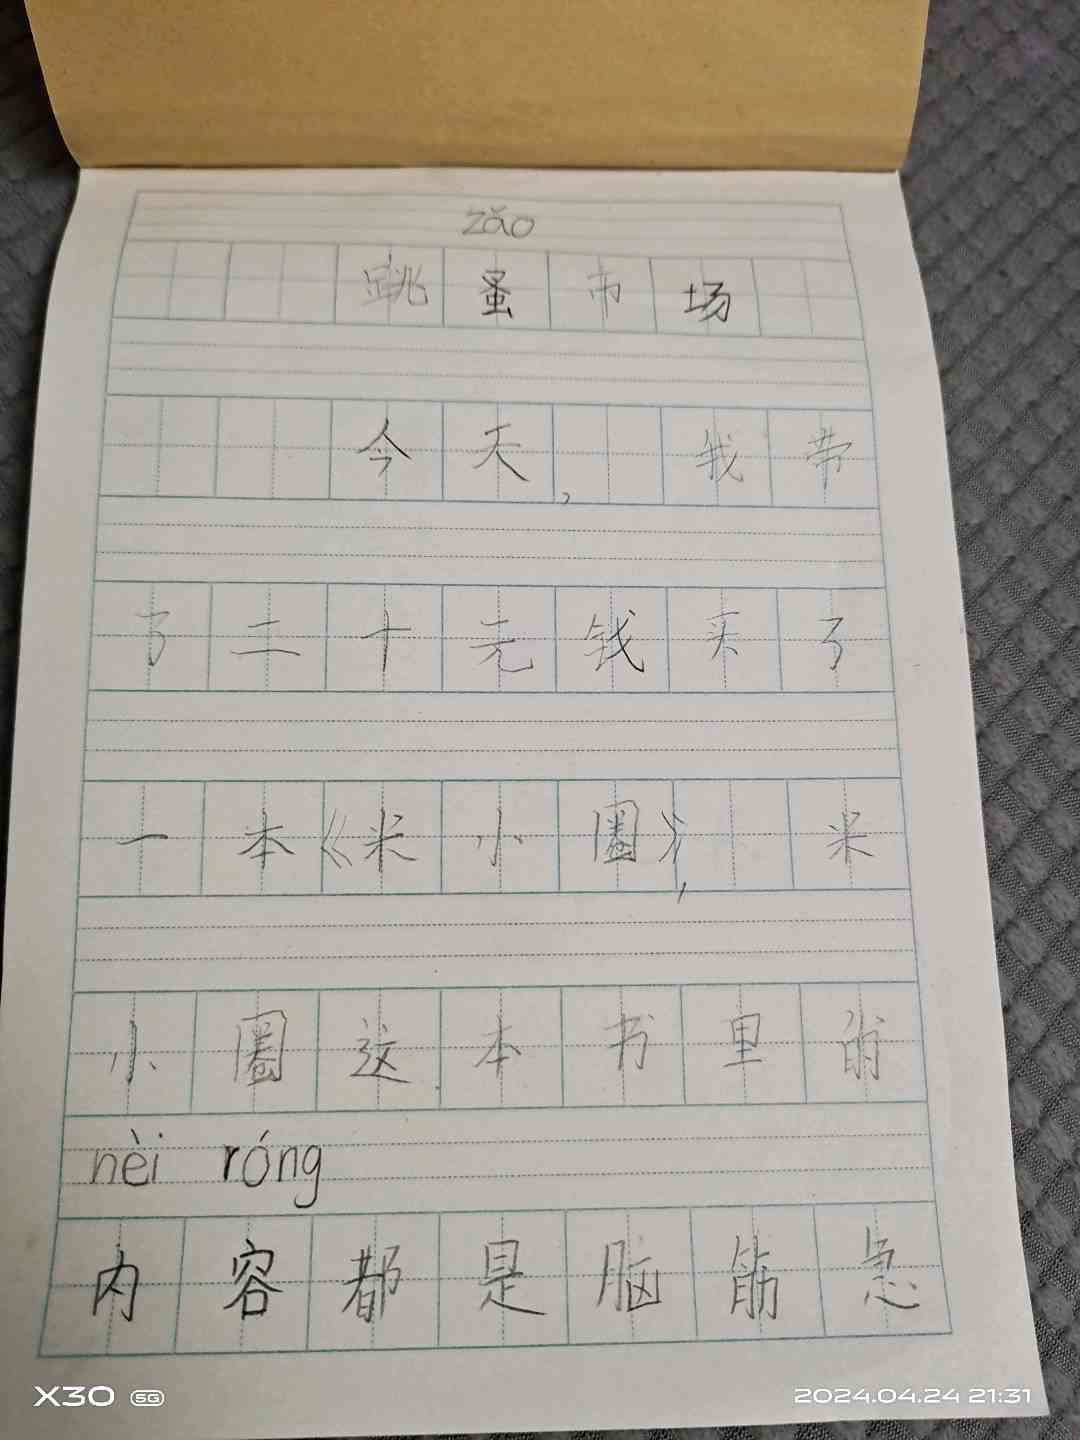 zǎo
跳蚤市场
今天,我带
了二十元钱买了
一本《米小圈》,米
小圈这本书里的
nèi róng
内容都是脑筋急
X30 5G
2024.04.24 21:31